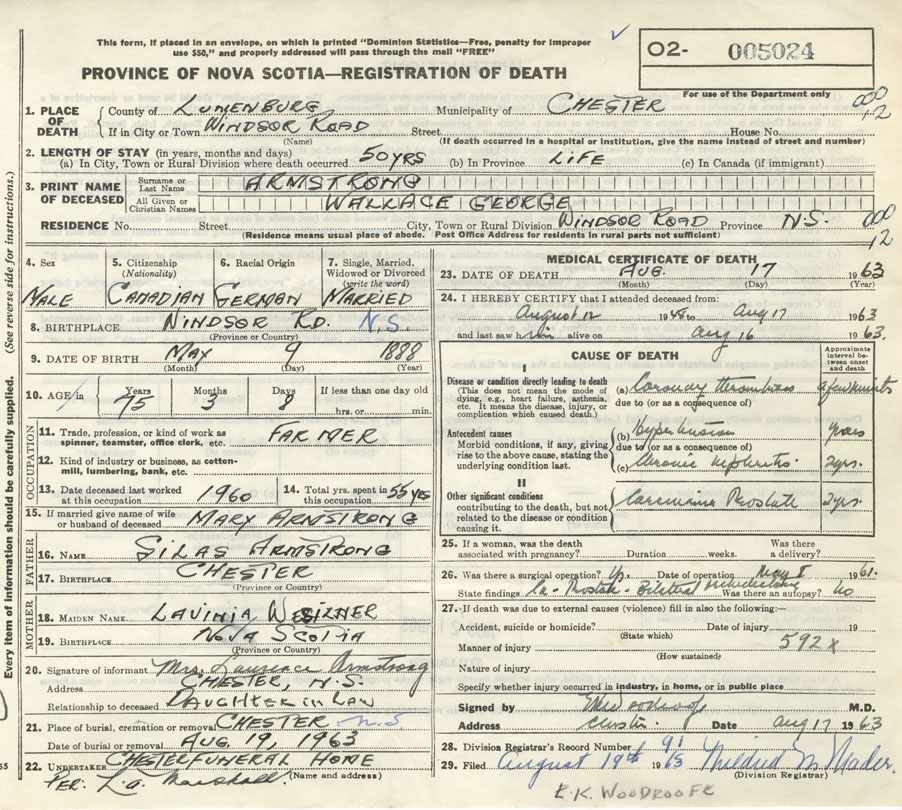 This form, if placed in an envelope, on which is printed "Dominion Statistics—Free, penalty for improper
use $50," and properly addressed will pass through the mail "FREE"
PROVINCE OF NOVA SCOTIA—REGISTRATION OF DEATH
O2- 005024
For use of the Department only
000
12
1. PLACE OF DEATH County of LUNENBURG Municipality of CHESTER
If in City or Town WINDSOR ROAD Street House No.
(Name) (If death occurred in a hospital or institution, give the name instead of street and number)
2. LENGTH OF STAY (in years, months and days)
(a) In City, Town or Rural Division where death occurred 50 YRS (b) In Province LIFE (c) In Canada (if immigrant)
3. PRINT NAME OF DECEASED Surname or Last Name ARMSTRONG
All Given or Christian Names WALLACE GEORGE
RESIDENCE No. Street City, Town or Rural Division WINDSOR ROAD Province N.S.
(Residence means usual place of abode. Post Office Address for residents in rural parts not sufficient)
000
12
(See reverse side for instructions.)
Every item of information should be carefully supplied.
4. Sex 5. Citizenship (Nationality) 6. Racial Origin 7. Single, Married, Widowed or Divorced (write the word)
MALE CANADIAN GERMAN MARRIED
8. BIRTHPLACE WINDSOR RD. N.S.
(Province or Country)
9. DATE OF BIRTH MAY 9 1888
(Month) (Day) (Year)
10. AGE in Years Months Days If less than one day old
75 3 8 hrs. or min.
OCCUPATION
11. Trade, profession, or kind of work as
spinner, teamster, office clerk, etc. FARMER
12. Kind of industry or business, as cotton-
mill, lumbering, bank, etc.
13. Date deceased last worked
at this occupation 1960
14. Total yrs. spent in
this occupation 55 YRS
15. If married give name of wife
or husband of deceased MARY ARMSTRONG
FATHER
16. NAME SILAS ARMSTRONG
17. BIRTHPLACE CHESTER
(Province or Country)
MOTHER
18. MAIDEN NAME LAVINIA
19. BIRTHPLACE NOVA SCOTIA
(Province or Country)
20. Signature of informant Mrs. Laurence Armstrong
Address CHESTER, N.S.
Relationship to deceased DAUGHTER IN LAW
21. Place of burial, cremation or removal CHESTER N.S
Date of burial or removal AUG. 19, 1963
22. UNDERTAKER CHESTER FUNERAL HOME
(Name and address)
PER: L.A. Marshall
55
MEDICAL CERTIFICATE OF DEATH
23. DATE OF DEATH AUG. 17 1963
(Month) (Day) (Year)
24. I HEREBY CERTIFY that I attended deceased from:
August 12 19 to Aug 17 1963
and last saw him alive on Aug 16 1963.
CAUSE OF DEATH
Approximate interval between onset and death
I
Disease or condition directly leading to death
(This does not mean the mode of
dying, e.g., heart failure, asthenia,
etc. It means the disease, injury, or
complication which caused death.)
(a) Coronary thrombosis a few minutes
due to (or as a consequence of)
Antecedent causes
Morbid conditions, if any, giving
rise to the above cause, stating the
underlying condition last.
(b) Hypertension years
due to (or as a consequence of)
(c) Chronic nephritis. 2 yrs.
II
Other significant conditions
contributing to the death, but not
related to the disease or condition
causing it.
Carcinoma Prostate 2 yrs.
25. If a woman, was the death
associated with pregnancy? Duration weeks. Was there
a delivery?
26. Was there a surgical operation? Yes. Date of operation May 8 1961.
State findings Ca- Prostate- Bilateral Was there an autopsy? No
27. If death was due to external causes (violence) fill in also the following:—
Accident, suicide or homicide? Date of injury 19
(State which)
Manner of injury 592X
(How sustained)
Nature of injury
Specify whether injury occurred in industry, in home, or in public place
Signed by M.D.
Address Chester. Date Aug 17 1963
28. Division Registrar's Record Number 91
29. Filed August 19th 1963 Mildred M. Nader.
(Division Registrar)
E.K. WOODROOFE